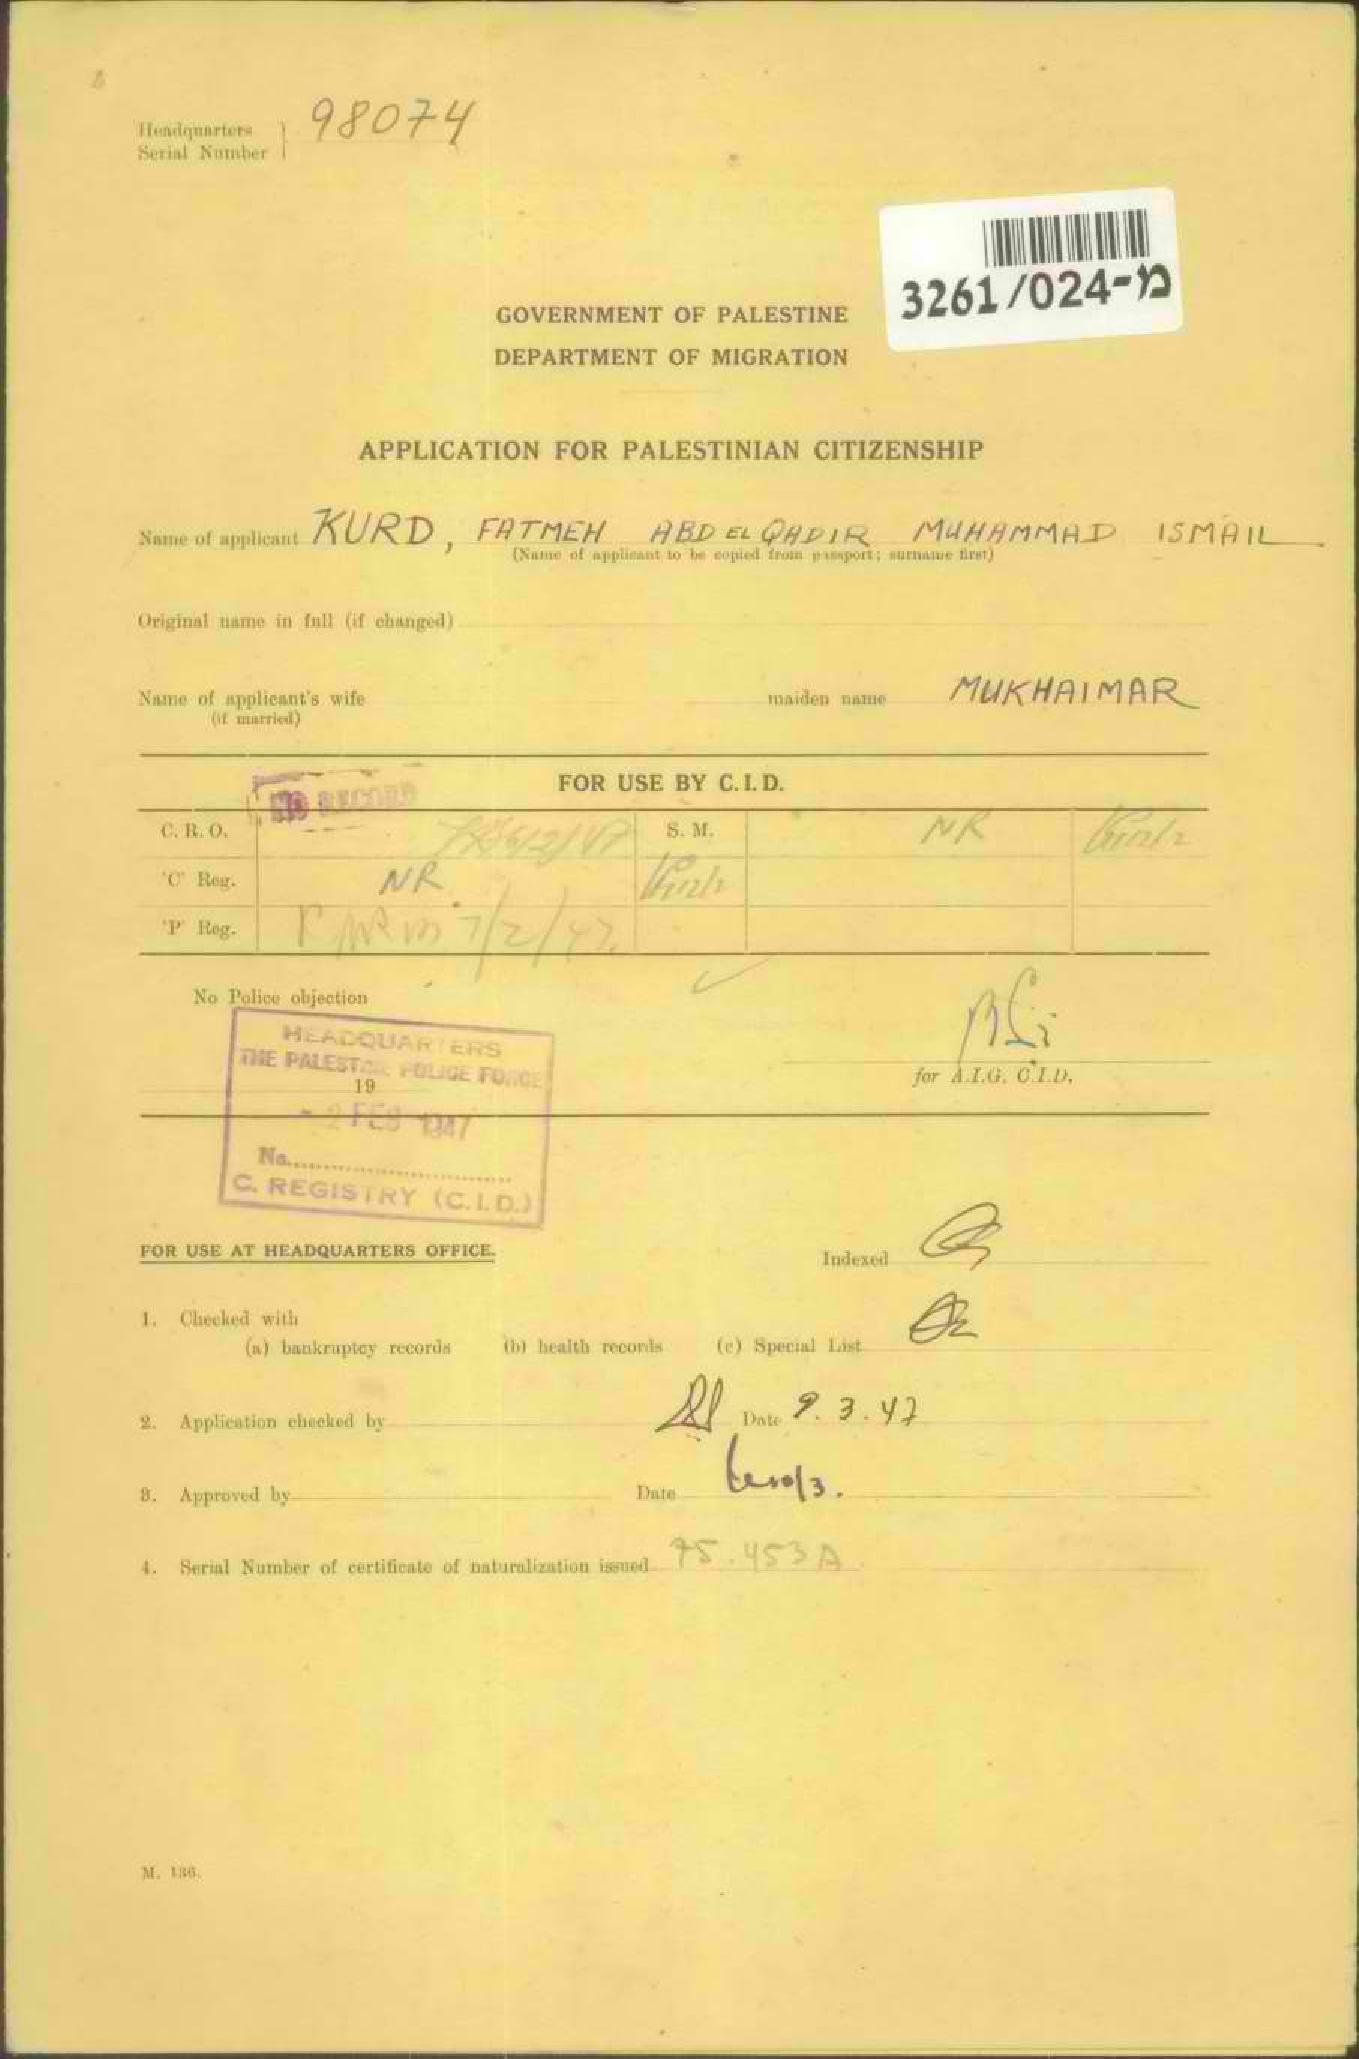 Headquarters
Serial Number } 98074
3261/024-מ
GOVERNMENT OF PALESTINE
DEPARTMENT OF MIGRATION
APPLICATION FOR PALESTINIAN CITIZENSHIP
Name of applicant KURD, FATMEH ABDELQADIR MUHAMMAD ISMAIL
(Name of applicant to be copied from passport; surname first)
Original name in full (if changed)
Name of applicant's wife maiden name MUKHAIMAR
(if married)
FOR USE BY C.I.D.
NO RECORD
C. R. O. S. M. NR
'C' Reg. NR
'P' Reg. 7/2/47.
No Police objection
HEADQUARTERS
THE PALESTINE POLICE FORCE
19
for A.I.G. C.I.D.
- 2 FEB 1947
No.
C. REGISTRY (C.I.D.)
FOR USE AT HEADQUARTERS OFFICE.
Indexed
1. Checked with
(a) bankruptcy records (b) health records (c) Special List
2. Application checked by Date 9.3.47
3. Approved by Date
4. Serial Number of certificate of naturalization issued 75.453A
M. 136.